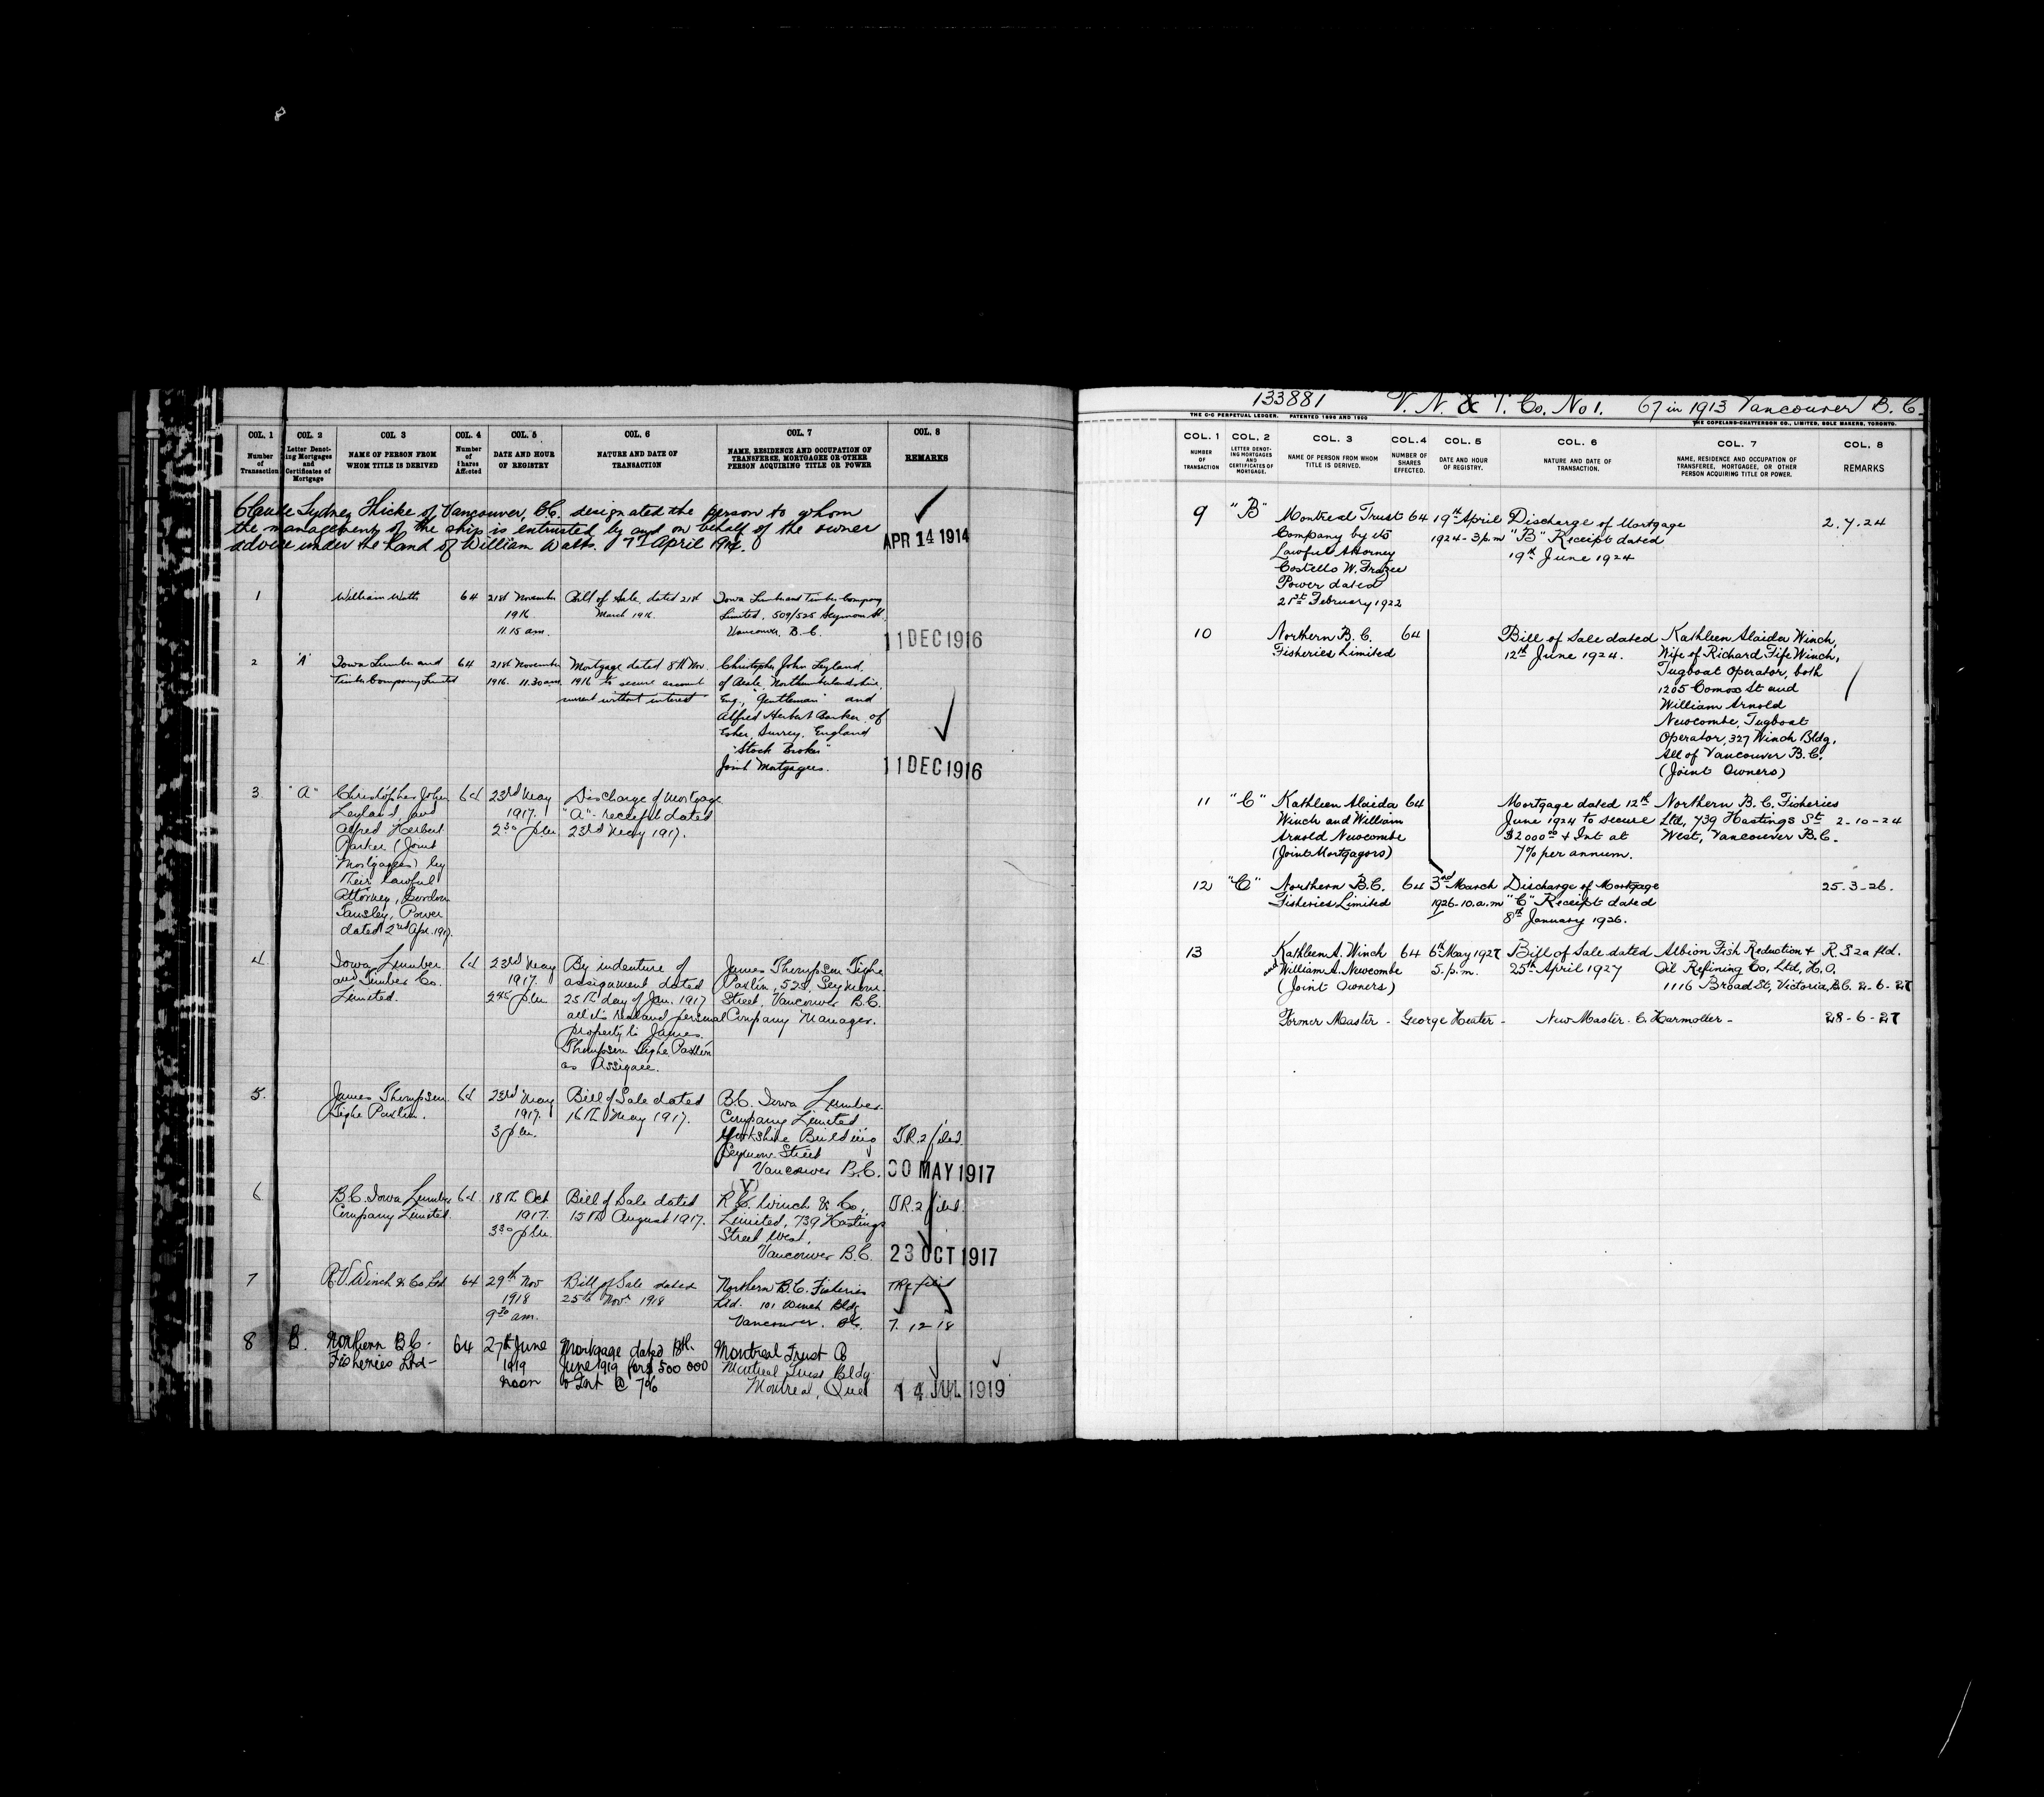 8
COL. 1
Number
of
Transaction
COL. 2
Letter Denot-
ing Mortgages
and
Certificates of
Mortgage
COL 3
NAME OF PERSON FROM
WHOM TITLE IS DERIVED
COL. 4
Number
of
Shares
Affected
COL. 5
DATE AND HOUR
OF REGISTRY
COL. 6
NATURE AND DATE OF
TRANSACTION
COL. 7
NAME, RESIDENCE AND OCCUPATION OF
TRANSFEREE, MORTGAGEE OR OTHER
PERSON ACQUIRING TITLE OR POWER
COL. 8
REMARKS
Claude Sydney Thicke of Vancouver, B.C. designated the person to whom
the management of the ship is entrusted by and on behalf of the owner
advice under the hand of William Watts. 7th April 1914.
APR 14 1914
1
William Watts
64
21st November
1916
11.15 am.
Bill of Sale, dated 21st
March 1916.
Iowa Lumber and Timber Company
Limited, 509/525 Seymour St.
Vancouver, B.C.
11 DEC 1916
2
"A"
Iowa Lumber and
Timber Company Limited
64
21st November
1916. 11.30 am
Mortgage dated 8th Nov.
1916 to secure account
current without interest
Christopher John Leyland,
of Beale, Northumberlandshire,
Eng., "Gentleman" and
Alfred Herbert Barker, of
Esher, Surrey, England
"Stock Broker"
Joint Mortgagees.
11 DEC 1916
3.
"A"
Christopher John
Leyland, and
Alfred Herbert
Barker (Joint
Mortgagees) by
their lawful
Attorney, Gordon
Tansley, Power
dated 2nd Apr. 1917.
64
23rd May
1917.
2 30 p.m.
Discharge of Mortgage
"A" receipt dated
23rd May 1917.
4.
Iowa Lumber
and Timber Co.
Limited.
64
23rd May
1917.
2 45 p.m.
By indenture of
assignment dated
25th day of Jan. 1917
all its real and personal
property to James
Thompson Tighe Paxlin
as Assignee.
James Thompson Tighe
Paxlin, 525, Seymour
Street, Vancouver B.C.
Company Manager.
5.
James Thompson
Tighe Paxlin.
64
23rd May
1917.
3 p.m.
Bill of Sale dated
16th May 1917.
B.C. Iowa Lumber
Company Limited
Yorkshire Building
Seymour Street
Vancouver B.C.
T.R. 2 filed.
30 MAY 1917
6
B.C. Iowa Lumber
Company Limited.
64
18th Oct
1917.
3 30 p.m.
Bill of Sale dated
15th August 1917.
(V)
R. C. Winch & Co,
Limited, 739 Hastings
Street West,
Vancouver B.C.
T.R. 2 filed.
23 OCT 1917
7
R.V. Winch & Co, Ltd
64
29th Nov
1918
9 30 am.
Bill of Sale dated
25th Novr 1918
Northern B.C. Fisheries
Ltd. 101 Winch Bldg
Vancouver. B.C.
filed
7. 12 18
8
B.
Northern B.C.
Fisheries Ltd
64
27th June
1919
noon
Mortgage dated
June 1919 for $ 500 000
& Int @ 7%
Montreal Trust Co
Montreal Trust Bldg
Montreal, Que
14 JUL 1919
133881 V. N. & T. Co. No 1. 67 in 1913 Vancouver B. C.
THE C-C PERPETUAL LEDGER. PATENTED 1896 AND 1900
THE COPELAND-CHATTERSON CO., LIMITED, SOLE MAKERS, TORONTO.
COL. 1
NUMBER
OF
TRANSACTION
COL. 2
LETTER DENOT-
ING MORTGAGES
AND
CERTIFICATES OF
MORTGAGE.
COL. 3
NAME OF PERSON FROM WHOM
TITLE IS DERIVED.
COL.4
NUMBER OF
SHARES
EFFECTED.
COL. 5
DATE AND HOUR
OF REGISTRY.
COL. 6
NATURE AND DATE OF
TRANSACTION.
COL. 7
NAME, RESIDENCE AND OCCUPATION OF
TRANSFEREE, MORTGAGEE, OR OTHER
PERSON ACQUIRING TITLE OR POWER.
COL. 8
REMARKS
9
"B"
Montreal Trust
Company by its
Lawful Attorney
Costello W. Frazee
Power dated
21st February 1922
64
19th April
1924 - 3 p.m
Discharge of Mortgage
"B" Receipt dated
19th June 1924
2. 7. 24
10
Northern B.C.
Fisheries Limited
64
Bill of Sale dated
12th June 1924.
Kathleen Alaida Winch,
Wife of Richard Fife Winch,
Tugboat Operator, both
1205 Comox St and
William Arnold
Newcombe, Tugboat
Operator, 327 Winch Bldg,
All of Vancouver B.C.
(Joint Owners)
11
"C"
Kathleen Alaida
Winch and William
Arnold Newcombe
(Joint Mortgagors)
64
Mortgage dated 12th
June 1924 to secure
$2000 00 & Int at
7% per annum.
Northern B.C. Fisheries
Ltd, 739 Hastings St
West, Vancouver B.C.
2-10-24
12
"C"
Northern B.C.
Fisheries Limited
64
3rd March
1926-10.a.m
Discharge of Mortgage
"C" Receipt dated
8th January 1926.
25-3-26.
13
Kathleen A. Winch
and William A. Newcombe
(Joint Owners)
64
6th May 1927
5. p.m.
Bill of Sale dated
25th April 1927
Albion Fish Reduction &
Oil Refining Co, Ltd, H.O.
1116 Broad St, Victoria, B.C.
R.S 2a fld.
2-6-27
Former Master - George Heater - New Master - C. Harmoller -
28-6-27